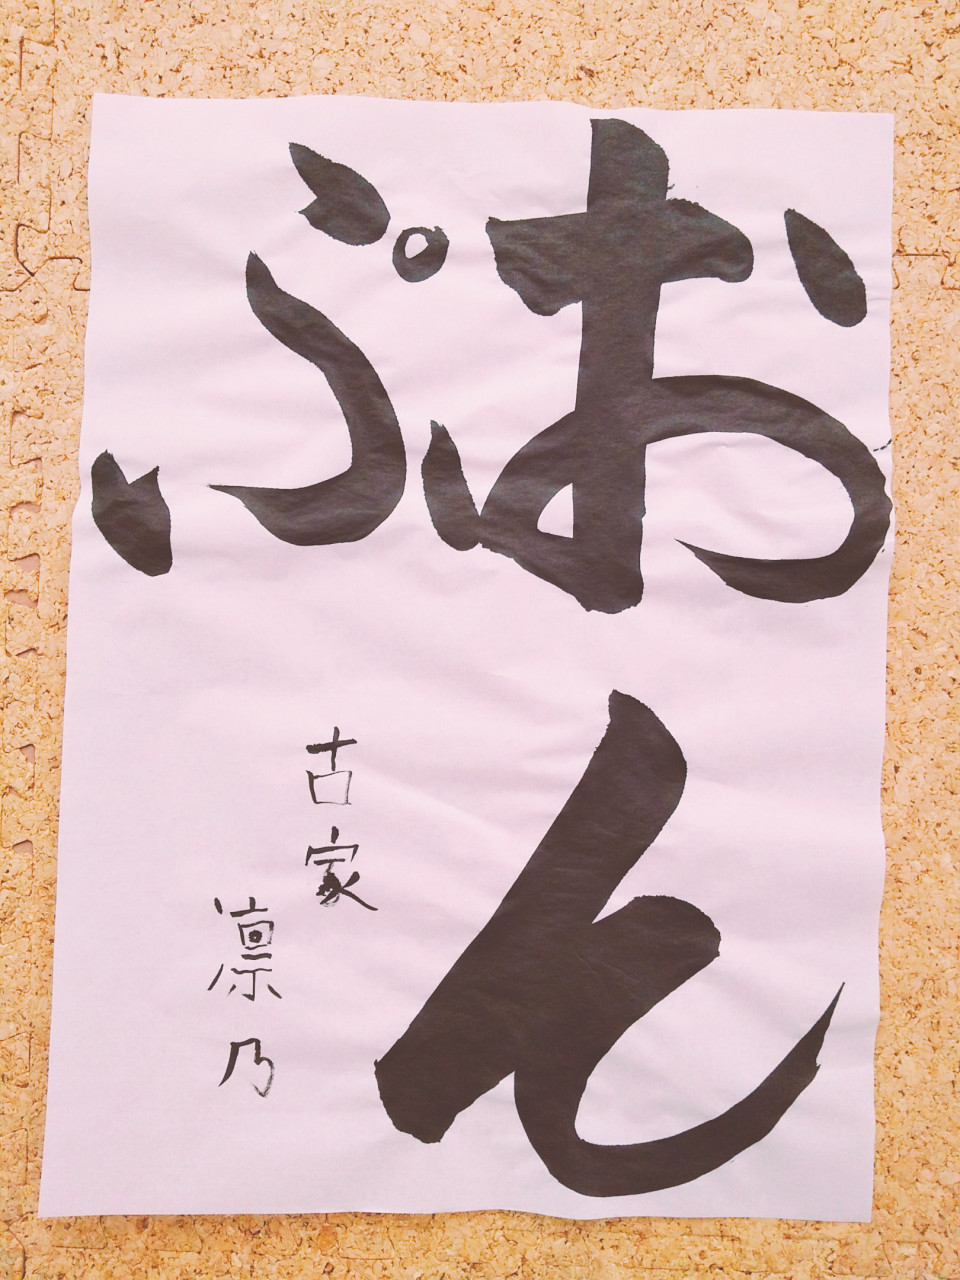 おん
ぷ
古家
凛乃